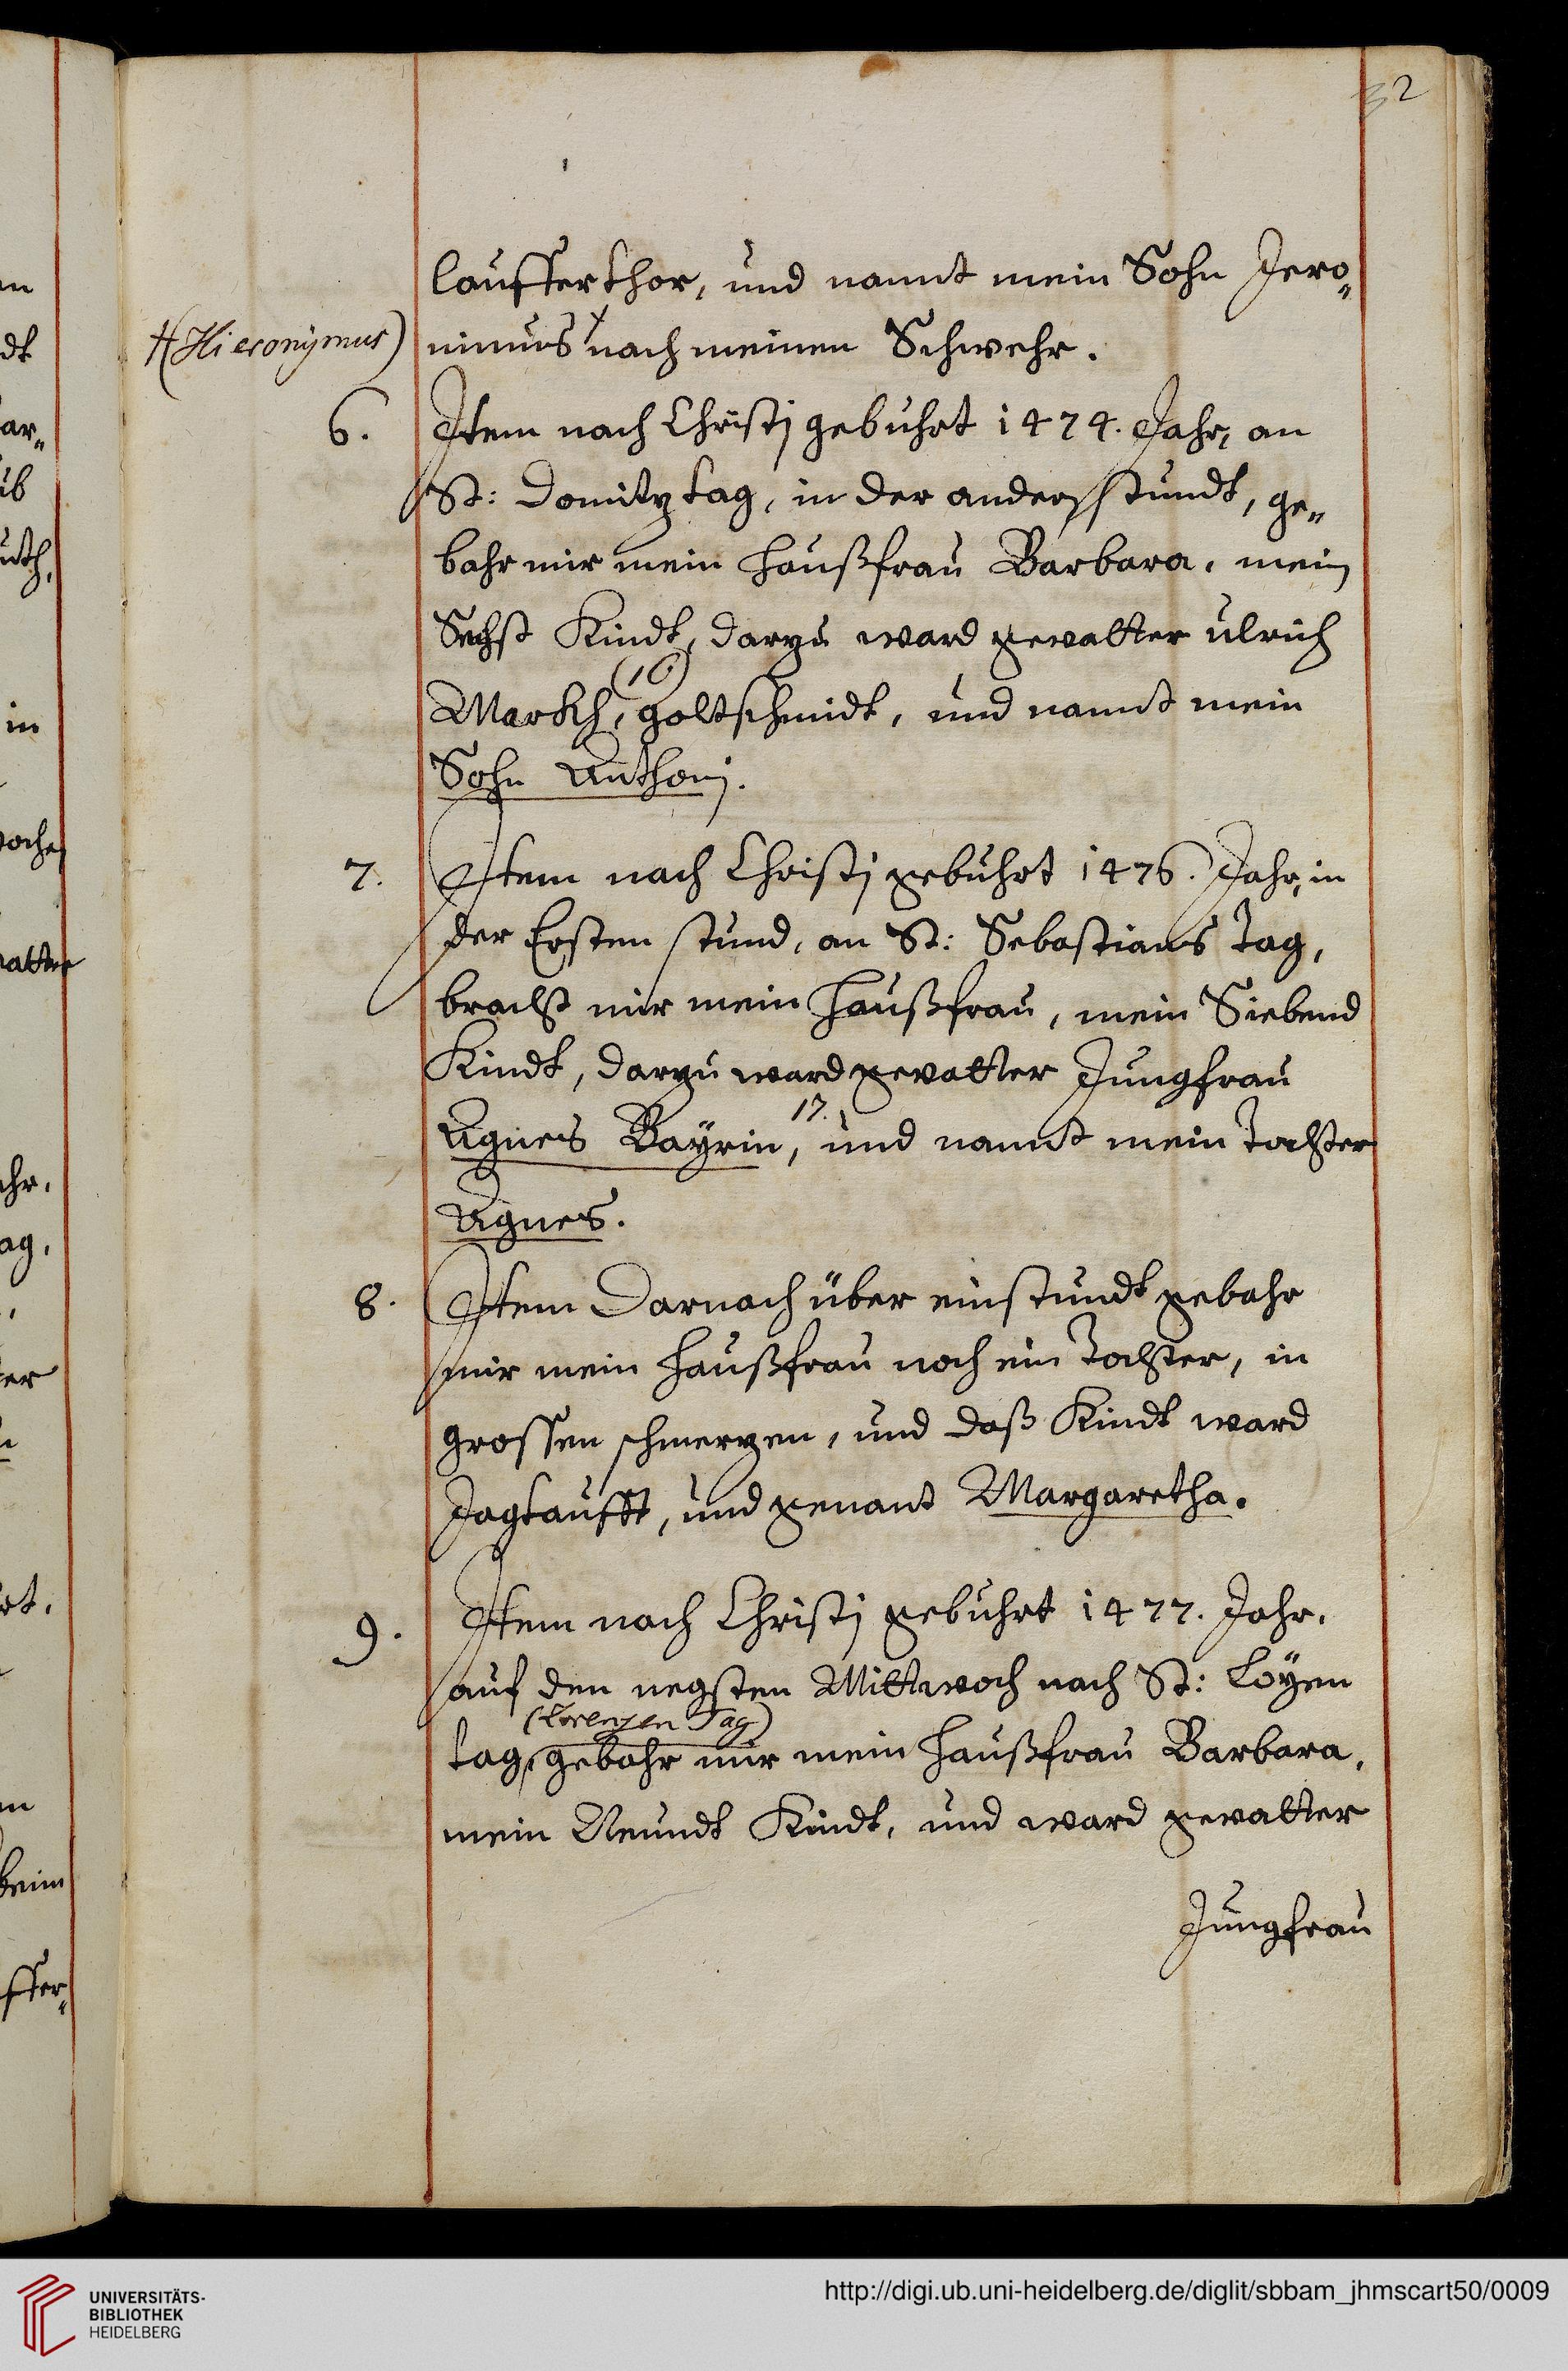 32
laufferthor, und nannt mein Sohn Jero„
+(Hieronymus) nimus + nach meinen Schwehr.
6. Item nach Christj gebuhrt 1474. Jahr, an
St: Domitz tag, in der andern stundt, ge„
bahr mir mein haußfrau Barbara, mein
Sechst Kindt, darzu ward gevatter ulrich
(16)
Markh, goltschmidt, und nannt mein
Sohn Anthonj.
7. Item nach Christj gebuhrt 1476. Jahr, in
der Ersten stund, an St: Sebastians Tag,
bracht mir mein haußfrau, mein Siebend
Kindt, darzu ward gevatter Jungfrau
17.
Agnes Bayrin, und nannt mein Tochter
Agnes.
8. Item Darnach über ein stundt gebahr
mir mein haußfrau noch ein Tochter, in
grossen schmerzen, und daß Kindt ward
Jagtaufft, und genant Margaretha.
9. Item nach Christj gebuhrt 1477. Jahr.
auf den negsten Mittwoch nach St: Loyen
(Lorenzen Tag)
tag, gebahr mir mein haußfrau Barbara,
mein Neundt Kindt, und ward gevatter
Jungfrau
UNIVERSITÄTS-
BIBLIOTHEK
HEIDELBERG
http://digi.ub.uni-heidelberg.de/diglit/sbbam_jhmscart50/0009